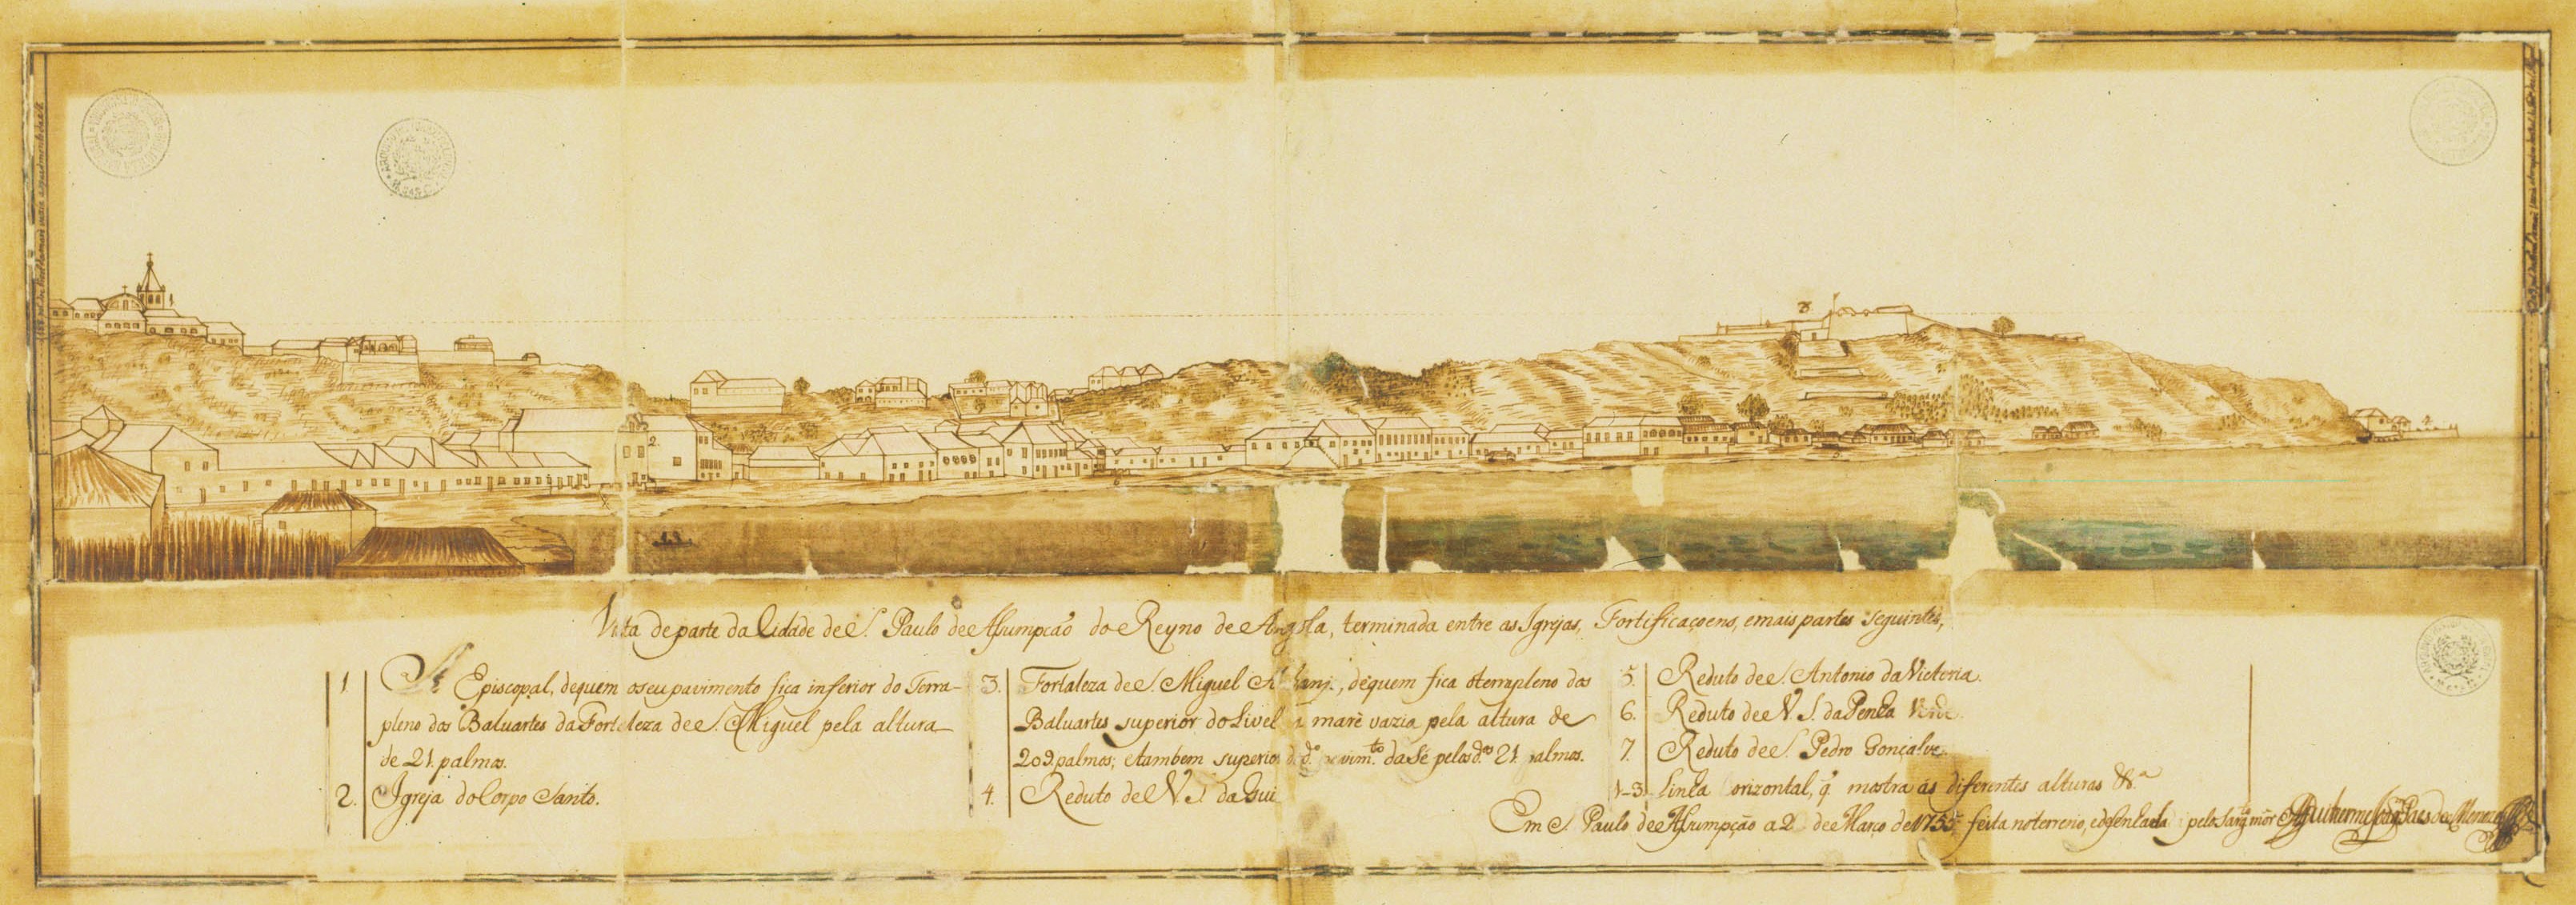 Vista de parte da Cidade de S. Paulo de Assumpcaõ do Reyno de Angola, terminada entre as Igrejas, Fortificaçoens, e mais partes seguintes,
1. Sé Episcopal, de quem o seu pavimento fica inferior do Terra-
pleno dos Baluartes da Fortaleza de S. Miguel pela altura
de 21. palmos.
2. Igreja do Corpo Santo.
3. Fortaleza de S. Miguel , de quem fica o terrapleno dos
Baluartes superior do Livel a maré vazia pela altura de
209. palmos; e tambem superior d.º pavim.to da Sé pelos d.os 21. palmos.
4. Reduto de N. S. da Gui
5. Reduto de S. Antonio da Victoria.
6. Reduto de N. S. da Penha
7. Reduto de S. Pedro Gonçalve
1-3 Linha orizontal, q̃ mostra as diferentes alturas &.ª
Em S. Paulo de Assumpção a 2 de Março de 1755 feita no terreno, e desenhada pelo Sarg.to mór Guilherme Joaq.m Paes de Menezes
2.